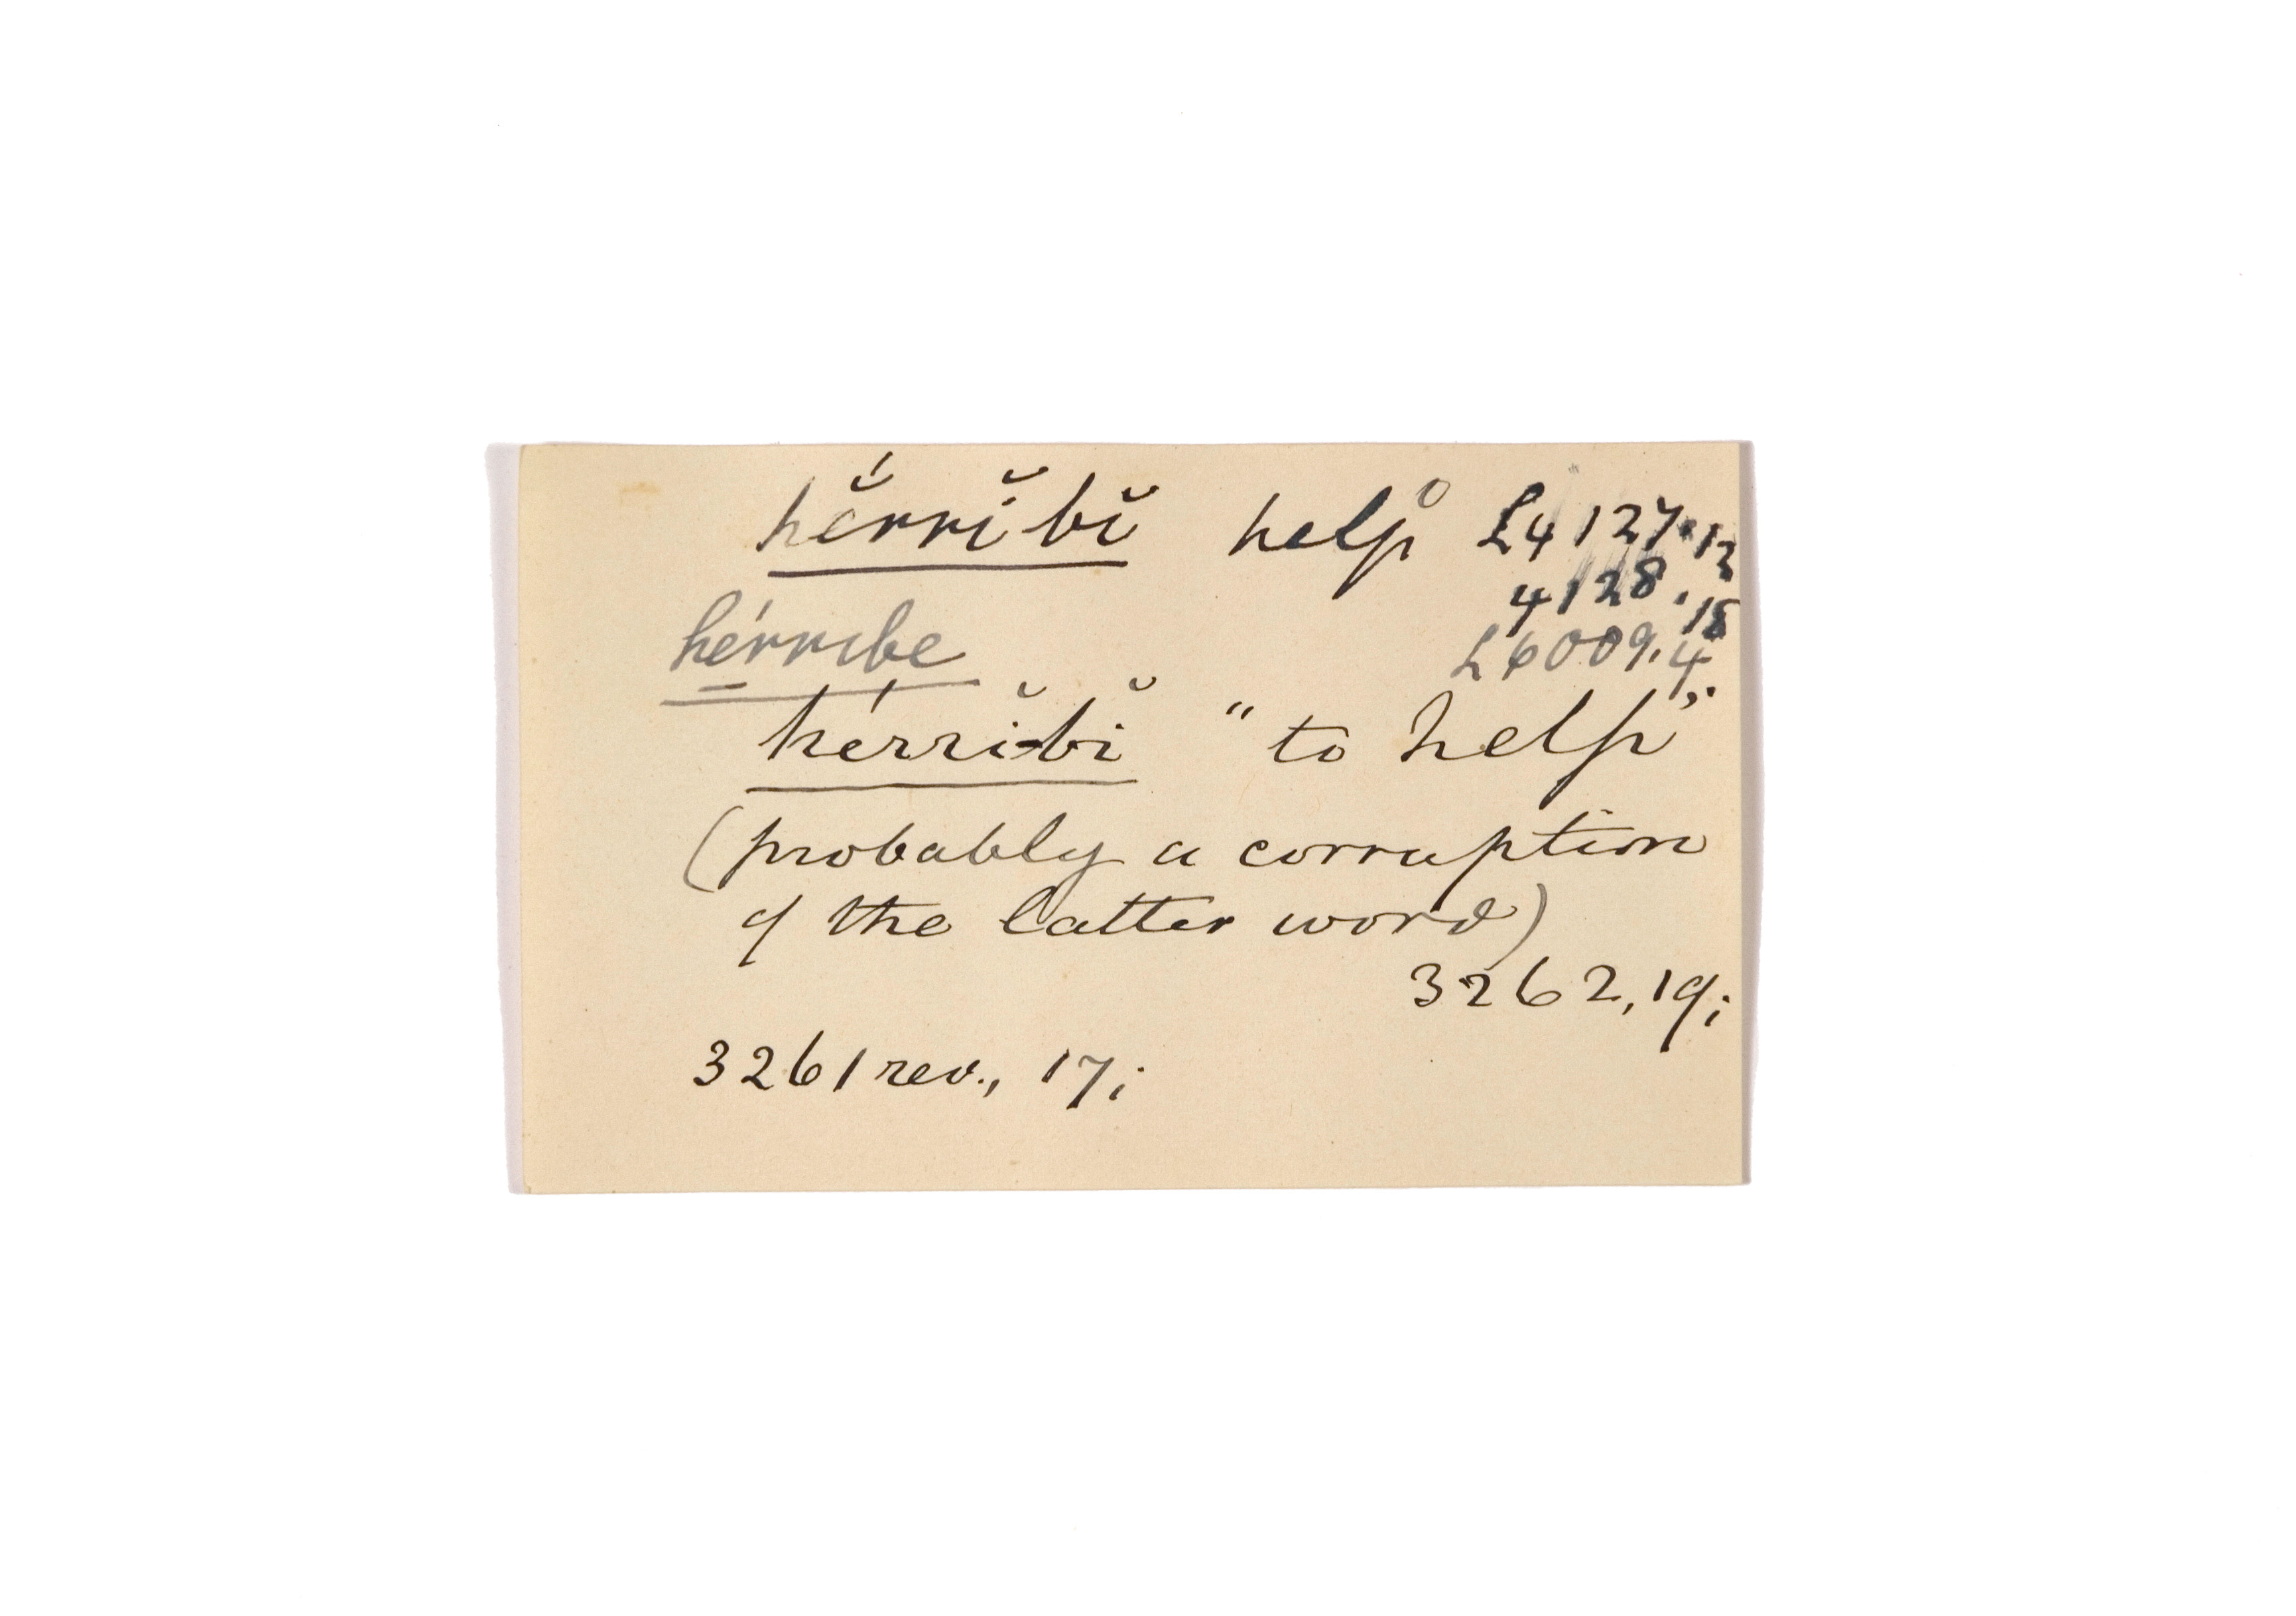 hĕ́rrĭbĭ help L4127.13
4128.18
hérribe L6009.4
hérrĭbĭ "to help"
(probably a corruption
of the latter word)
3262,19;
3261 rev., 17;